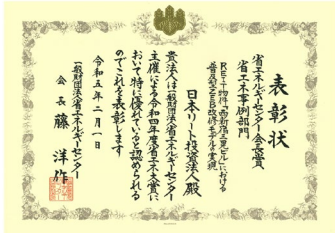 表彰状
省エネルギーセンター会長賞
省エネ事例部門
REIT物件「西新宿三晃ビル」における
普及型ZEB改修モデルの実現
日本リート投資法人殿
貴法人は一般財団法人省エネルギーセンター
主催による令和四年度省エネ大賞に
おいて特に優れていると認められる
のでこれを表彰します
令和五年二月一日
一般財団法人省エネルギーセンター
会長 藤 洋作